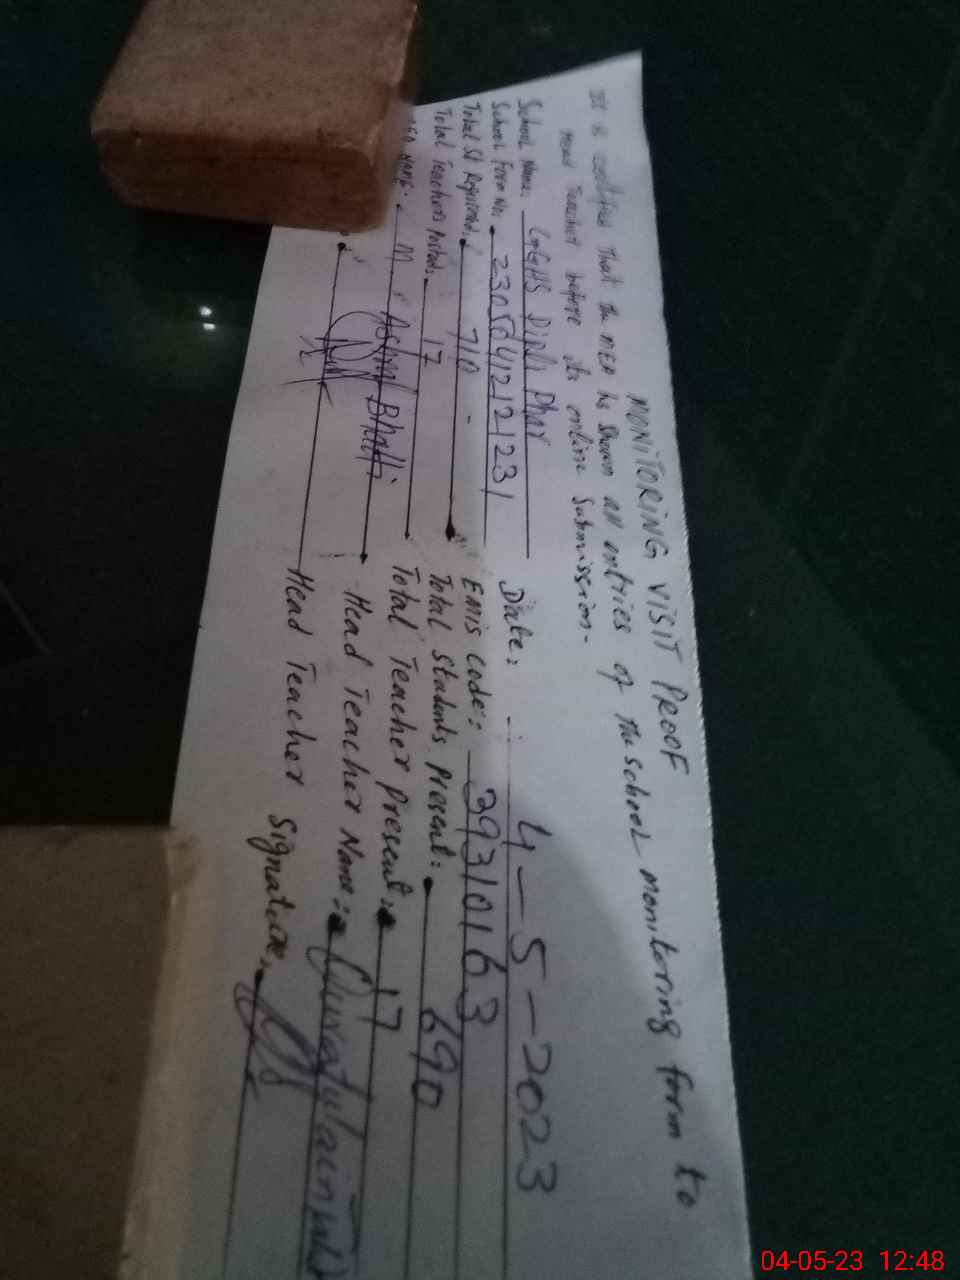 MONITORING VISIT PROOF
It is certified that the MEA has shown all entries of the school monitoring form to
Head Teacher before its online submission.
School Name: GGHS Phar
Date: 4-5-2023
School Form No:
EMIS Code: 39310163
Total St Registered: 710
Total Students Present: 690
Total Teachers Posted: 17
Total Teacher Present: 17
NAME: M. Bhatti
Head Teacher Name: Qurratulain
Head Teacher Signature:
04-05-23 12:48